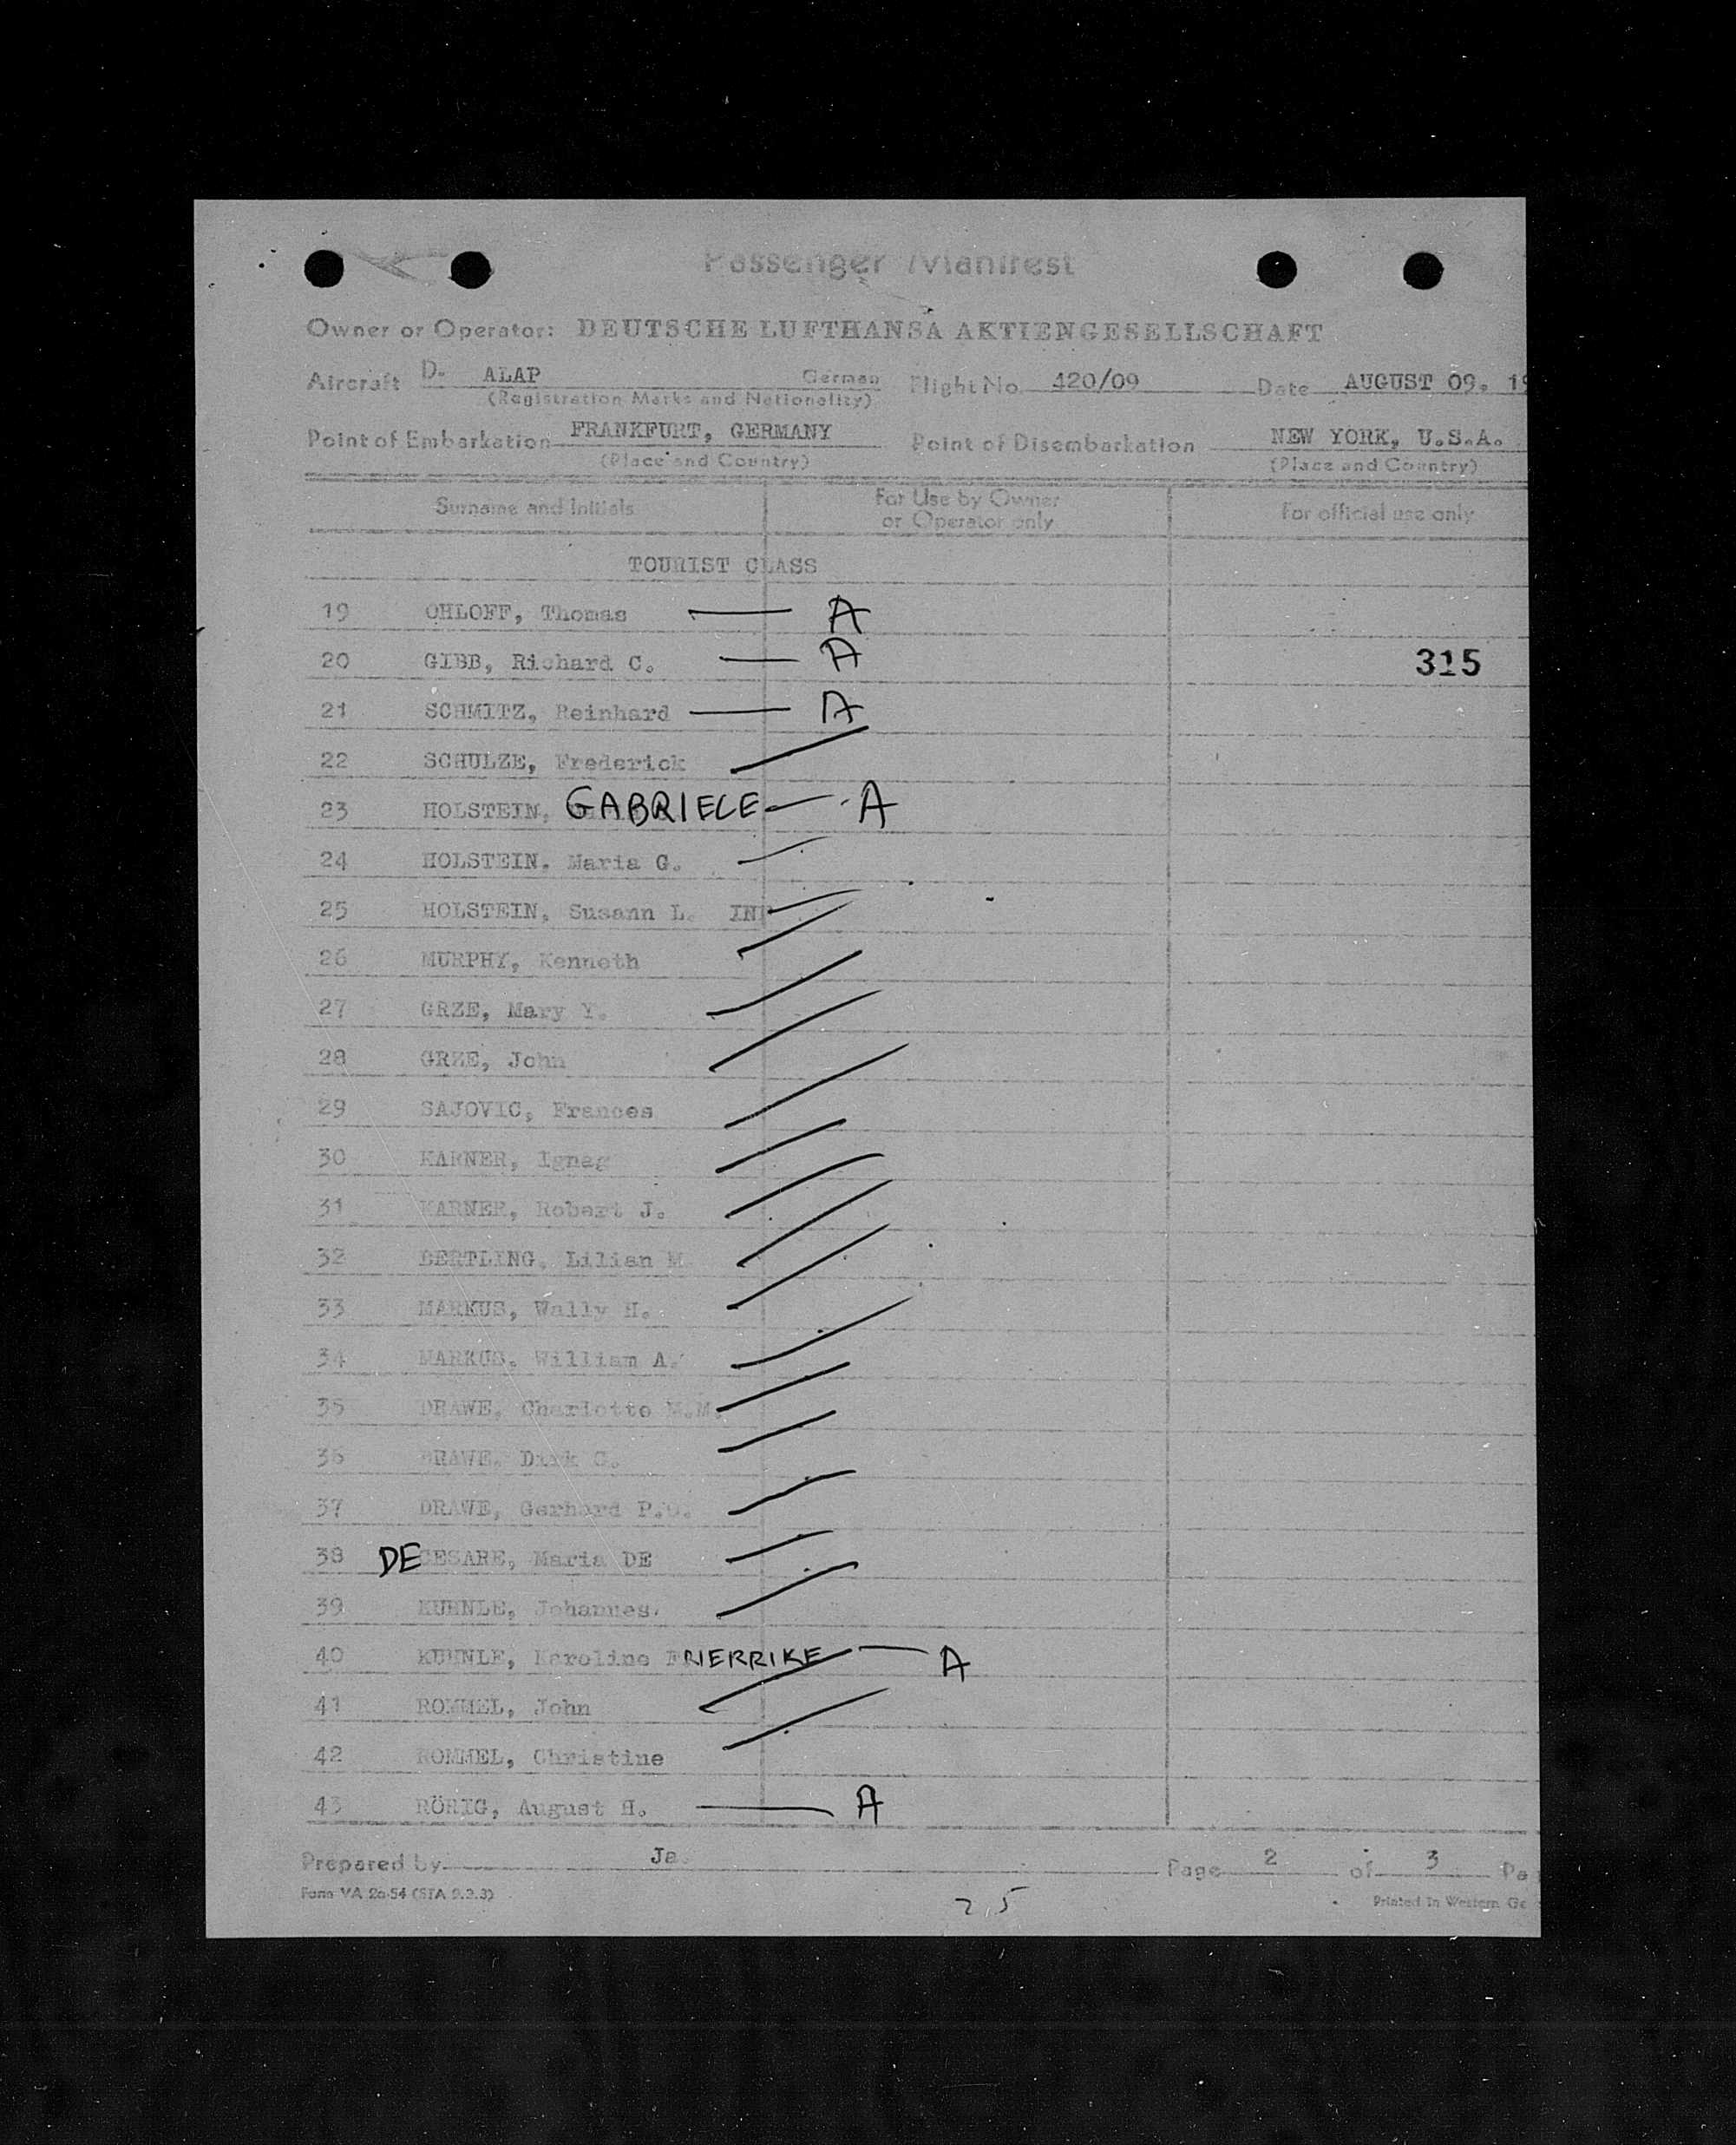 Passenger Manifest
Owner or Operator: DEUTSCHE LUFTHANSA AKTIENGESELLSCHAFT
Aircraft D. ALAP German Flight No. 420/09 Date AUGUST 09. 19
(Registration Marks and Nationality)
Point of Embarkation FRANKFURT, GERMANY Point of Disembarkation NEW YORK, U.S.A.
(Place and Country) (Place and Country)
Surname and Initials For Use by Owner or Operator only For official use only
TOURIST CLASS
19 OHLOFF, Thomas A
20 GIBB, Richard C. A 315
21 SCHMITZ, Reinhard A
22 SCHULZE, Frederick
23 HOLSTEIN, GABRIELE A
24 HOLSTEIN. Maria G.
25 HOLSTEIN, Susann L. INF
26 MURPHY, Kenneth
27 GRZE, Mary Y.
28 GRZE, John
29 SAJOVIC, Frances
30 KARNER, Ignag
31 KARNER, Robert J.
32 BERTLING, Lilian M.
33 MARKUS, Wally H.
34 MARKUS. William A.
35 DRAWE, Charlotte M.M.
36 DRAWE. Dirk G.
37 DRAWE, Gerhard P.
38 DE CESARE, Maria DE
39 KUHNLE, Johannes.
40 KUHNLE, Karoline FRIERRIKE A
41 ROMMEL, John
42 ROMMEL, Christine
43 RÖHIG, August H. A
Prepared by Ja. Page 2 of 3 Pa
Form VA 2a-54 (STA 9.3.3) 25 Printed in Western Ge